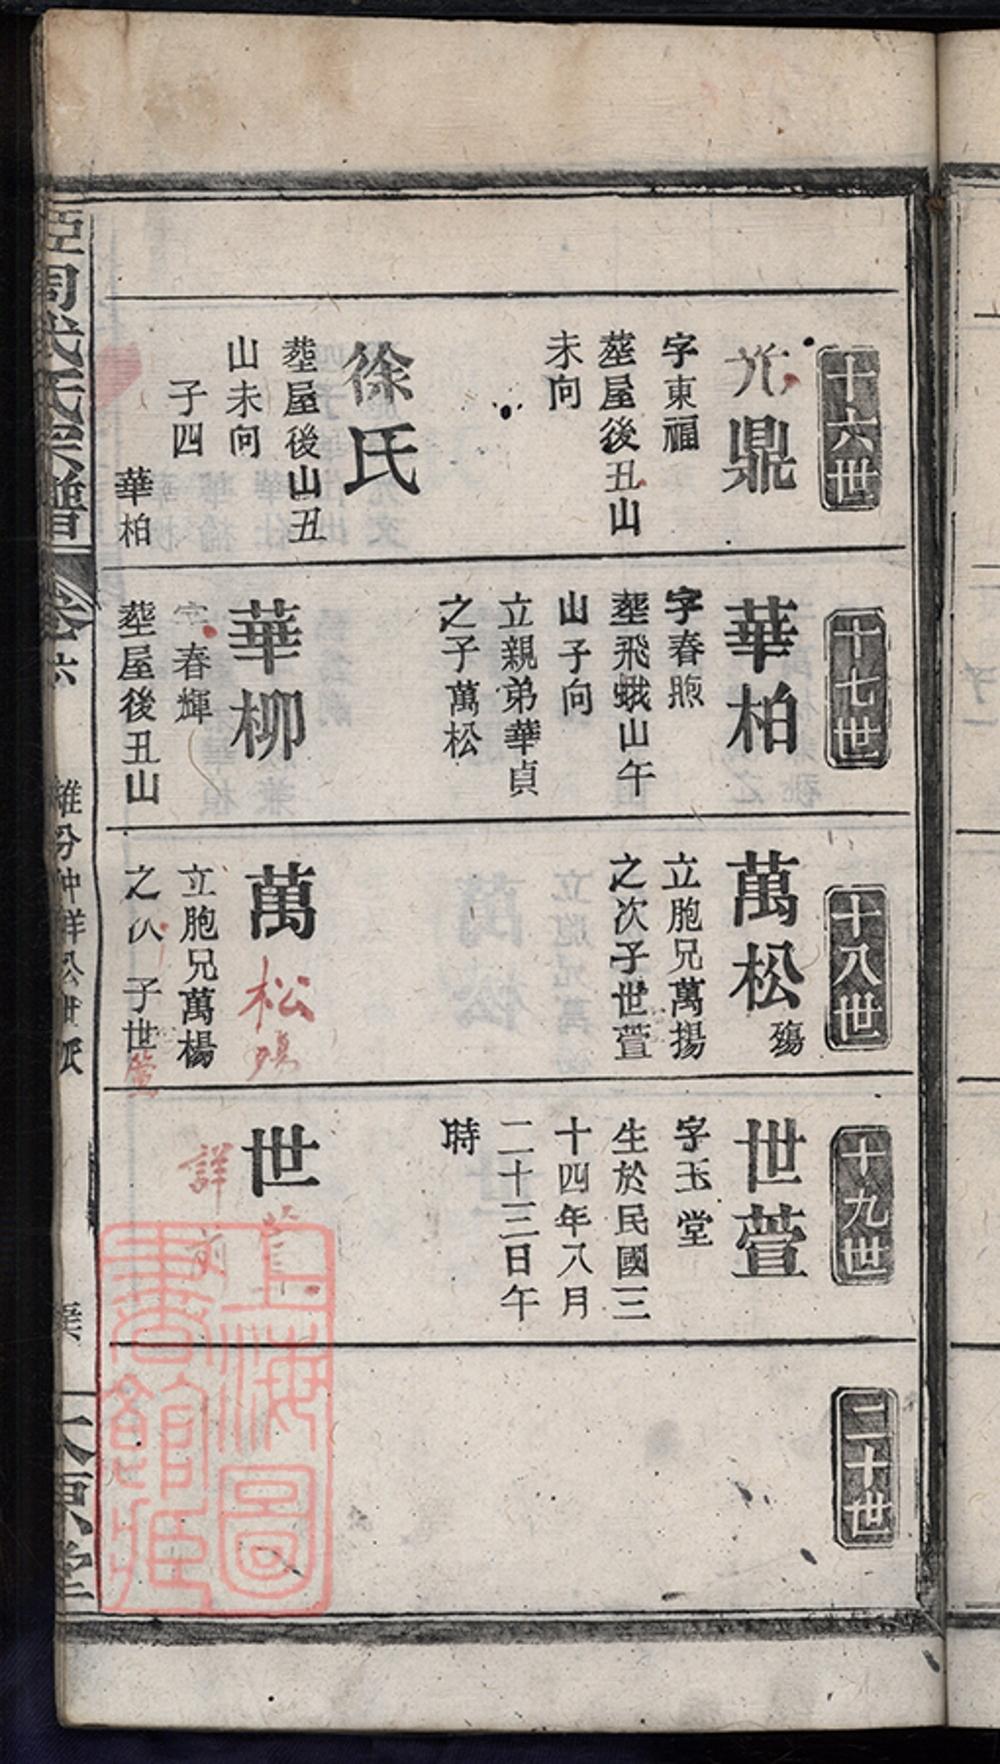 十六世
鼎
字東福
塟屋後丑山
未向
徐氏
塟屋後山丑
山未向
子四
華柏
十七世
華柏
字春煦
塟飛蛾山午
山子向
立親弟華貞
之子萬松
華柳
字春輝
塟屋後丑山
十八世
萬松
殤
立胞兄萬揚
之次子世萱
萬松
殤
立胞兄萬楊
之次子世萱
十九世
世萱
字玉堂
生於民國三
十四年八月
二十三日午
時
世
詳
二十世
周氏宗譜
卷六
雒分仲祥公世派
太原堂
上海圖
書館藏